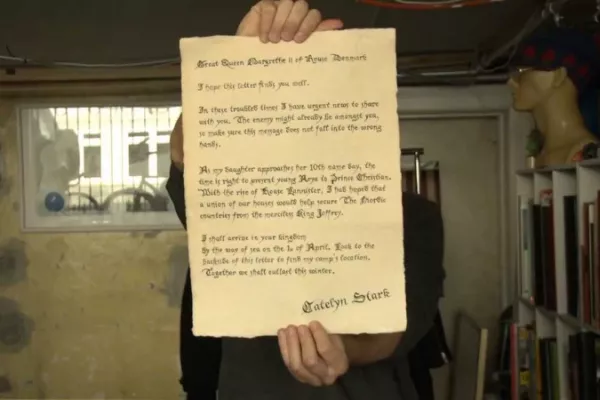 Great Queen Margrethe II of House Denmark
I hope this letter finds you well.
In these troubled times I have urgent news to share
with you. The enemy might already be amongst you,
so make sure this message does not fall into the wrong
hands.
As my daughter approaches her 10th name day, the
time is right to present young Arya to Prince Christian.
With the rise of House Lannister, I had hoped that
a union of our houses would help secure The Nordic
countries from the merciless King Joffrey.
I shall arrive in your kingdom
by the way of sea on the 1. of April. Look to the
backside of this letter to find my camp's location.
Together we shall outlast this winter.
Catelyn Stark